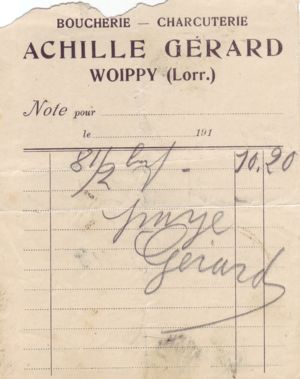 BOUCHERIE — CHARCUTERIE
ACHILLE GÉRARD
WOIPPY (Lorr.)
Note pour
le 191
8 1/2 - 10.20
payé
Gérard